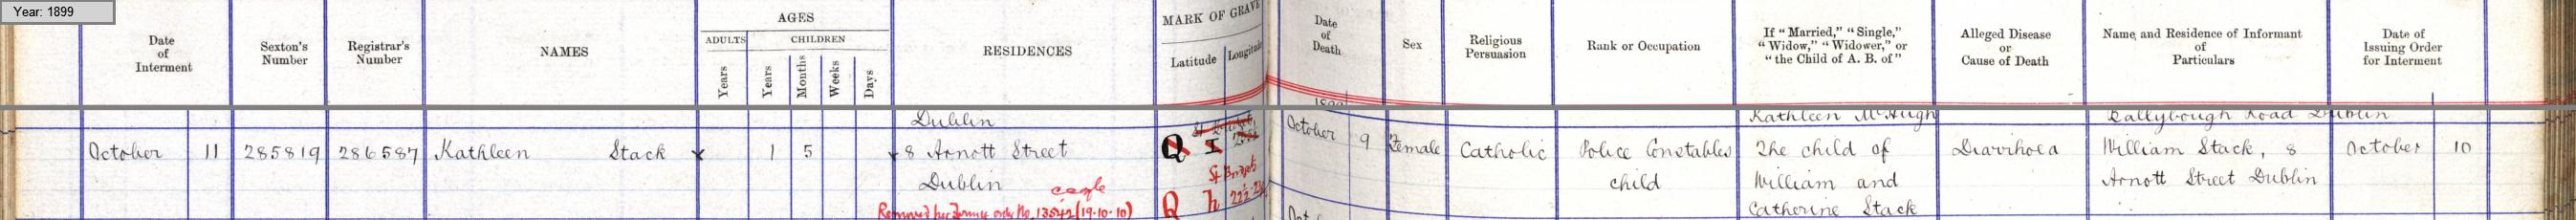 Year: 1899
Date
of
Interment
Sexton's
Number
Registrar's
Number
NAMES
AGES
ADULTS
CHILDREN
Years
Years
Months
Weeks
Days
RESIDENCES
MARK OF GRAVE
Latitude
Longitude
Date
of
Death
Sex
Religious
Persuasion
Rank or Occupation
If "Married," "Single,"
"Widow," "Widower," or
"the Child of A. B. of"
Alleged Disease
or
Cause of Death
Name, and Residence of Informant
of
Particulars
Date of
Issuing Order
for Interment
1899
Dublin
Kathleen McHugh
Ballybough Road Dublin
October 11
285819
286587
Kathleen Stack
x
1
5
x 8 Arnott Street
Dublin
Q I
October 9
Female
Catholic
Police Constables
child
The child of
William and
Catherine Stack
Diarrihoea
William Stack, 8
Arnott Street Dublin
October 10
Removed per order No. 13542 (19.10.10)
St Brigets
Q h 222
Oct